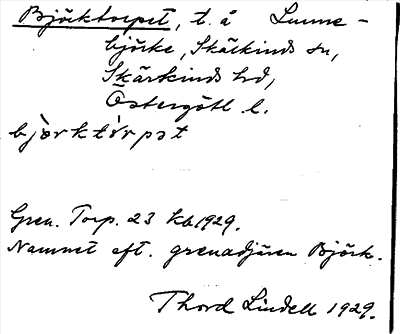 Björktorpet, t. å Lunne-
björke, Skärkinds sn,
Skärkinds hd,
Östergötl. l.
bjørktòrpət
Gren. Torp. 23 kb 1929.
Namnet eft. grenadjären Björk.
Thord Lindell 1929.